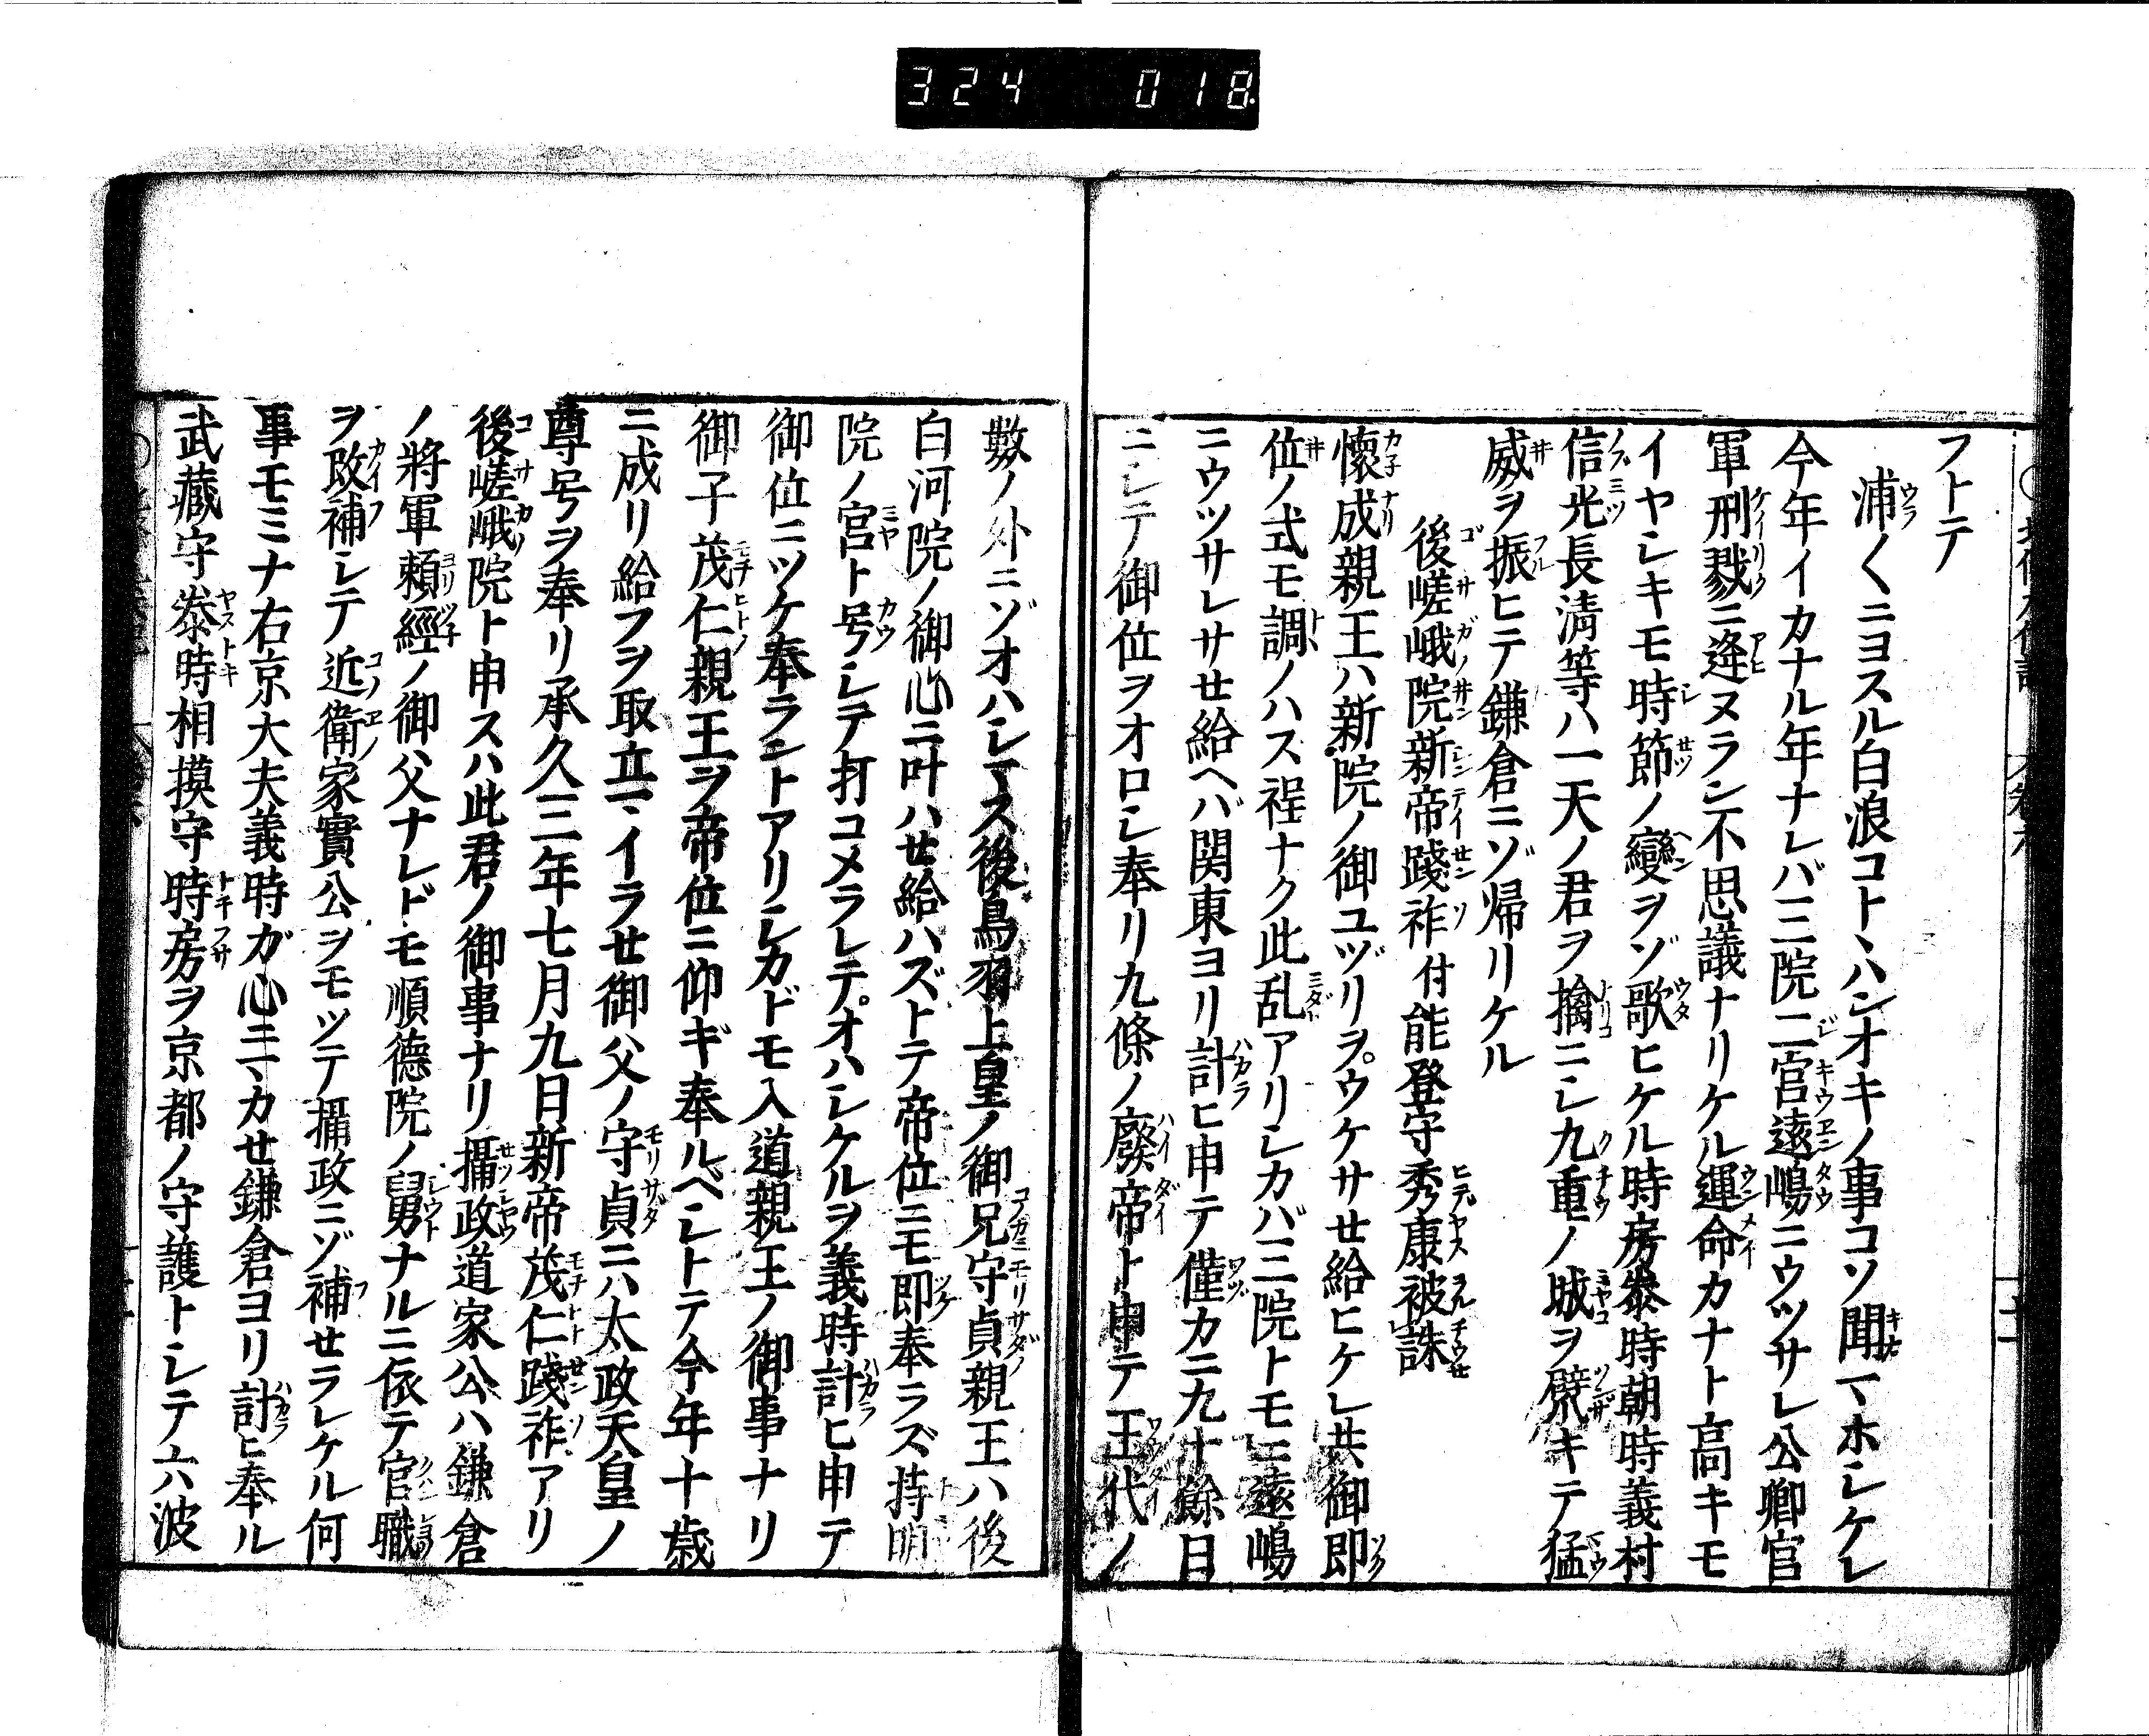 324 018
フトテ
浦〱ニヨスル白浪コトヽハンオキノ事コソ聞マホシケレ
今年イカナル年ナレバ三院二宮遠嶋ニウツサレ公卿官
軍刑戮ニ逢ヌラン不思議ナリケル運命カナト高キモ
イヤシキモ時節ノ變ヲゾ歌ヒケル時房泰時朝時義村
信光長清等ハ一天ノ君ヲ擒ニシ九重ノ城ヲ襞キテ猛
威ヲ振ヒテ鎌倉ニゾ帰リケル
後嵯峨院新帝踐祚付能登守秀康被誅
懐成親王ハ新院ノ御ユヅリヲウケサセ給ヒケレ共御即
位ノ式モ調ノハス程ナク此乱アリシカバ三院トモニ遠嶋
ニウツサレサセ給ヘバ関東ヨリ計ヒ申テ僅カニ九十餘日
ニシテ御位ヲオロシ奉リ九條ノ廢帝ト申テ王代ノ
數ノ外ニゾオハシマス後鳥羽上皇ノ御兄守貞親王ハ後
白河院ノ御心ニ叶ハせ給ハズトテ帝位ニモ即奉ラズ持明
院ノ宮ト号シテ打コメラレテオハシケルヲ義時計ヒ申テ
御位ニツケ奉ラントアリシカドモ入道親王ノ御事ナリ
御子茂仁親王ヲ帝位ニ仰ギ奉ルベシトテ今年十歳
ニ成リ給フヲ取立マイラせ御父ノ守貞ニハ太政天皇ノ
尊号ヲ奉リ承久三年七月九日新帝茂仁踐祚アリ
後嵯峨院ト申スハ此君ノ御事ナリ攝政道家公ハ鎌倉
ノ將軍頼經ノ御父ナレドモ順德院ノ舅ナルニ依テ官職
ヲ改補シテ近衛家實公ヲモツテ攝政ニゾ補せラレケル何
事モミナ右京大夫義時ガ心ニマカせ鎌倉ヨリ計ヒ奉ル
武藏守泰時相摸守時房ヲ京都ノ守護トシテ六波